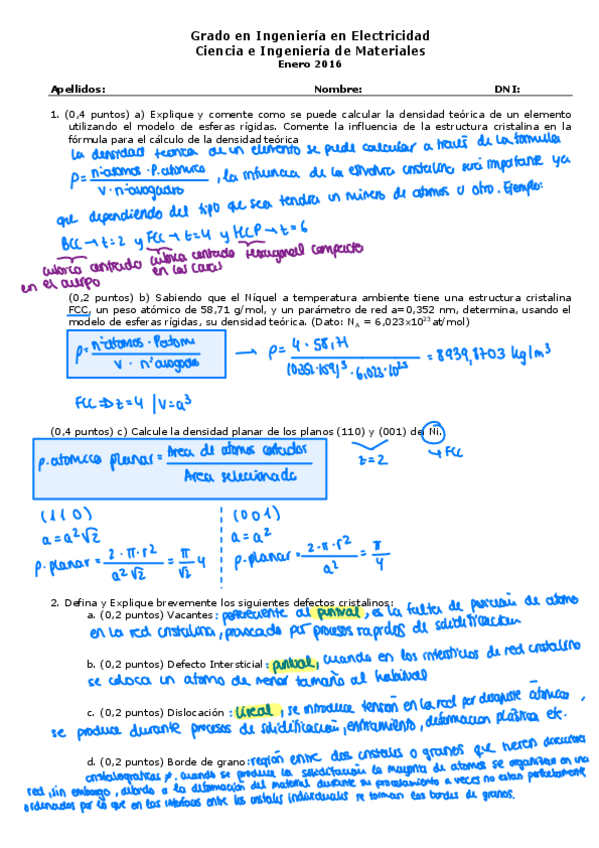 Grado en Ingeniería en Electricidad
Ciencia e Ingeniería de Materiales
Enero 2016
Apellidos: Nombre: DNI:
1. (0,4 puntos) a) Explique y comente como se puede calcular la densidad teórica de un elemento
utilizando el modelo de esferas rígidas. Comente la influencia de la estructura cristalina en la
fórmula para el cálculo de la densidad teórica
la densidad teorica de un elemento se puede calcular a través de la formula
ρ = nºatomos · P.atomico / V · nºavogadro , la influencia de la estructura cristalina será importante ya
que dependiendo del tipo que sea tendra un número de atomos u otro. Ejemplo:
BCC → z=2 y FCC → z=4 y HCP → z=6
cubica centrada en el cuerpo
cubica centrada en las caras
hexagonal compacto
(0,2 puntos) b) Sabiendo que el Níquel a temperatura ambiente tiene una estructura cristalina
FCC, un peso atómico de 58,71 g/mol, y un parámetro de red a=0,352 nm, determina, usando el
modelo de esferas rígidas, su densidad teórica. (Dato: NA = 6,023x10²³at/mol)
ρ = nºatomos · Patom / V · nºavogadro → ρ = 4 · 58,71 / (0,352·10⁹)³ · 6,023·10²³ = 8939,8703 kg/m³
FCC ⇒ z=4 | V=a³
(0,4 puntos) c) Calcule la densidad planar de los planos (110) y (001) del Ni.
z=2 → FCC
ρ. atomica planar = Area de atomos cortados / Area seleccionada
(110) (001)
a = a²√2 a = a²
ρ. planar = 2·π·r² / a²√2 = π/√2 4
ρ. planar = 2·π·r² / a² = π/4
2. Defina y Explique brevemente los siguientes defectos cristalinos:
a. (0,2 puntos) Vacantes: perteneciente al puntual, es la falta de posición de atomo
en la red cristalina, provocado por procesos rapidos de solidificacion
b. (0,2 puntos) Defecto Intersticial: puntual, cuando en los intersticios de red cristalino
se coloca un atomo de menor tamaño al habitual
c. (0,2 puntos) Dislocación: lineal, se introduce tensión en la red por desajuste atomicos,
se produce durante procesos de solidificación, enfriamiento, deformacion plástica etc.
d. (0,2 puntos) Borde de grano: región entre dos cristales o granos que tienen direcciones
cristalograficas. cuando se produce la solidificación la mayoria de atomos se organizan en una
red, sin embargo, debido a la deformación del material durante su procesamiento a veces no estan perfectamente
ordenados por lo que en las interfaces entre los cristales individuales se forman los bordes de granos.